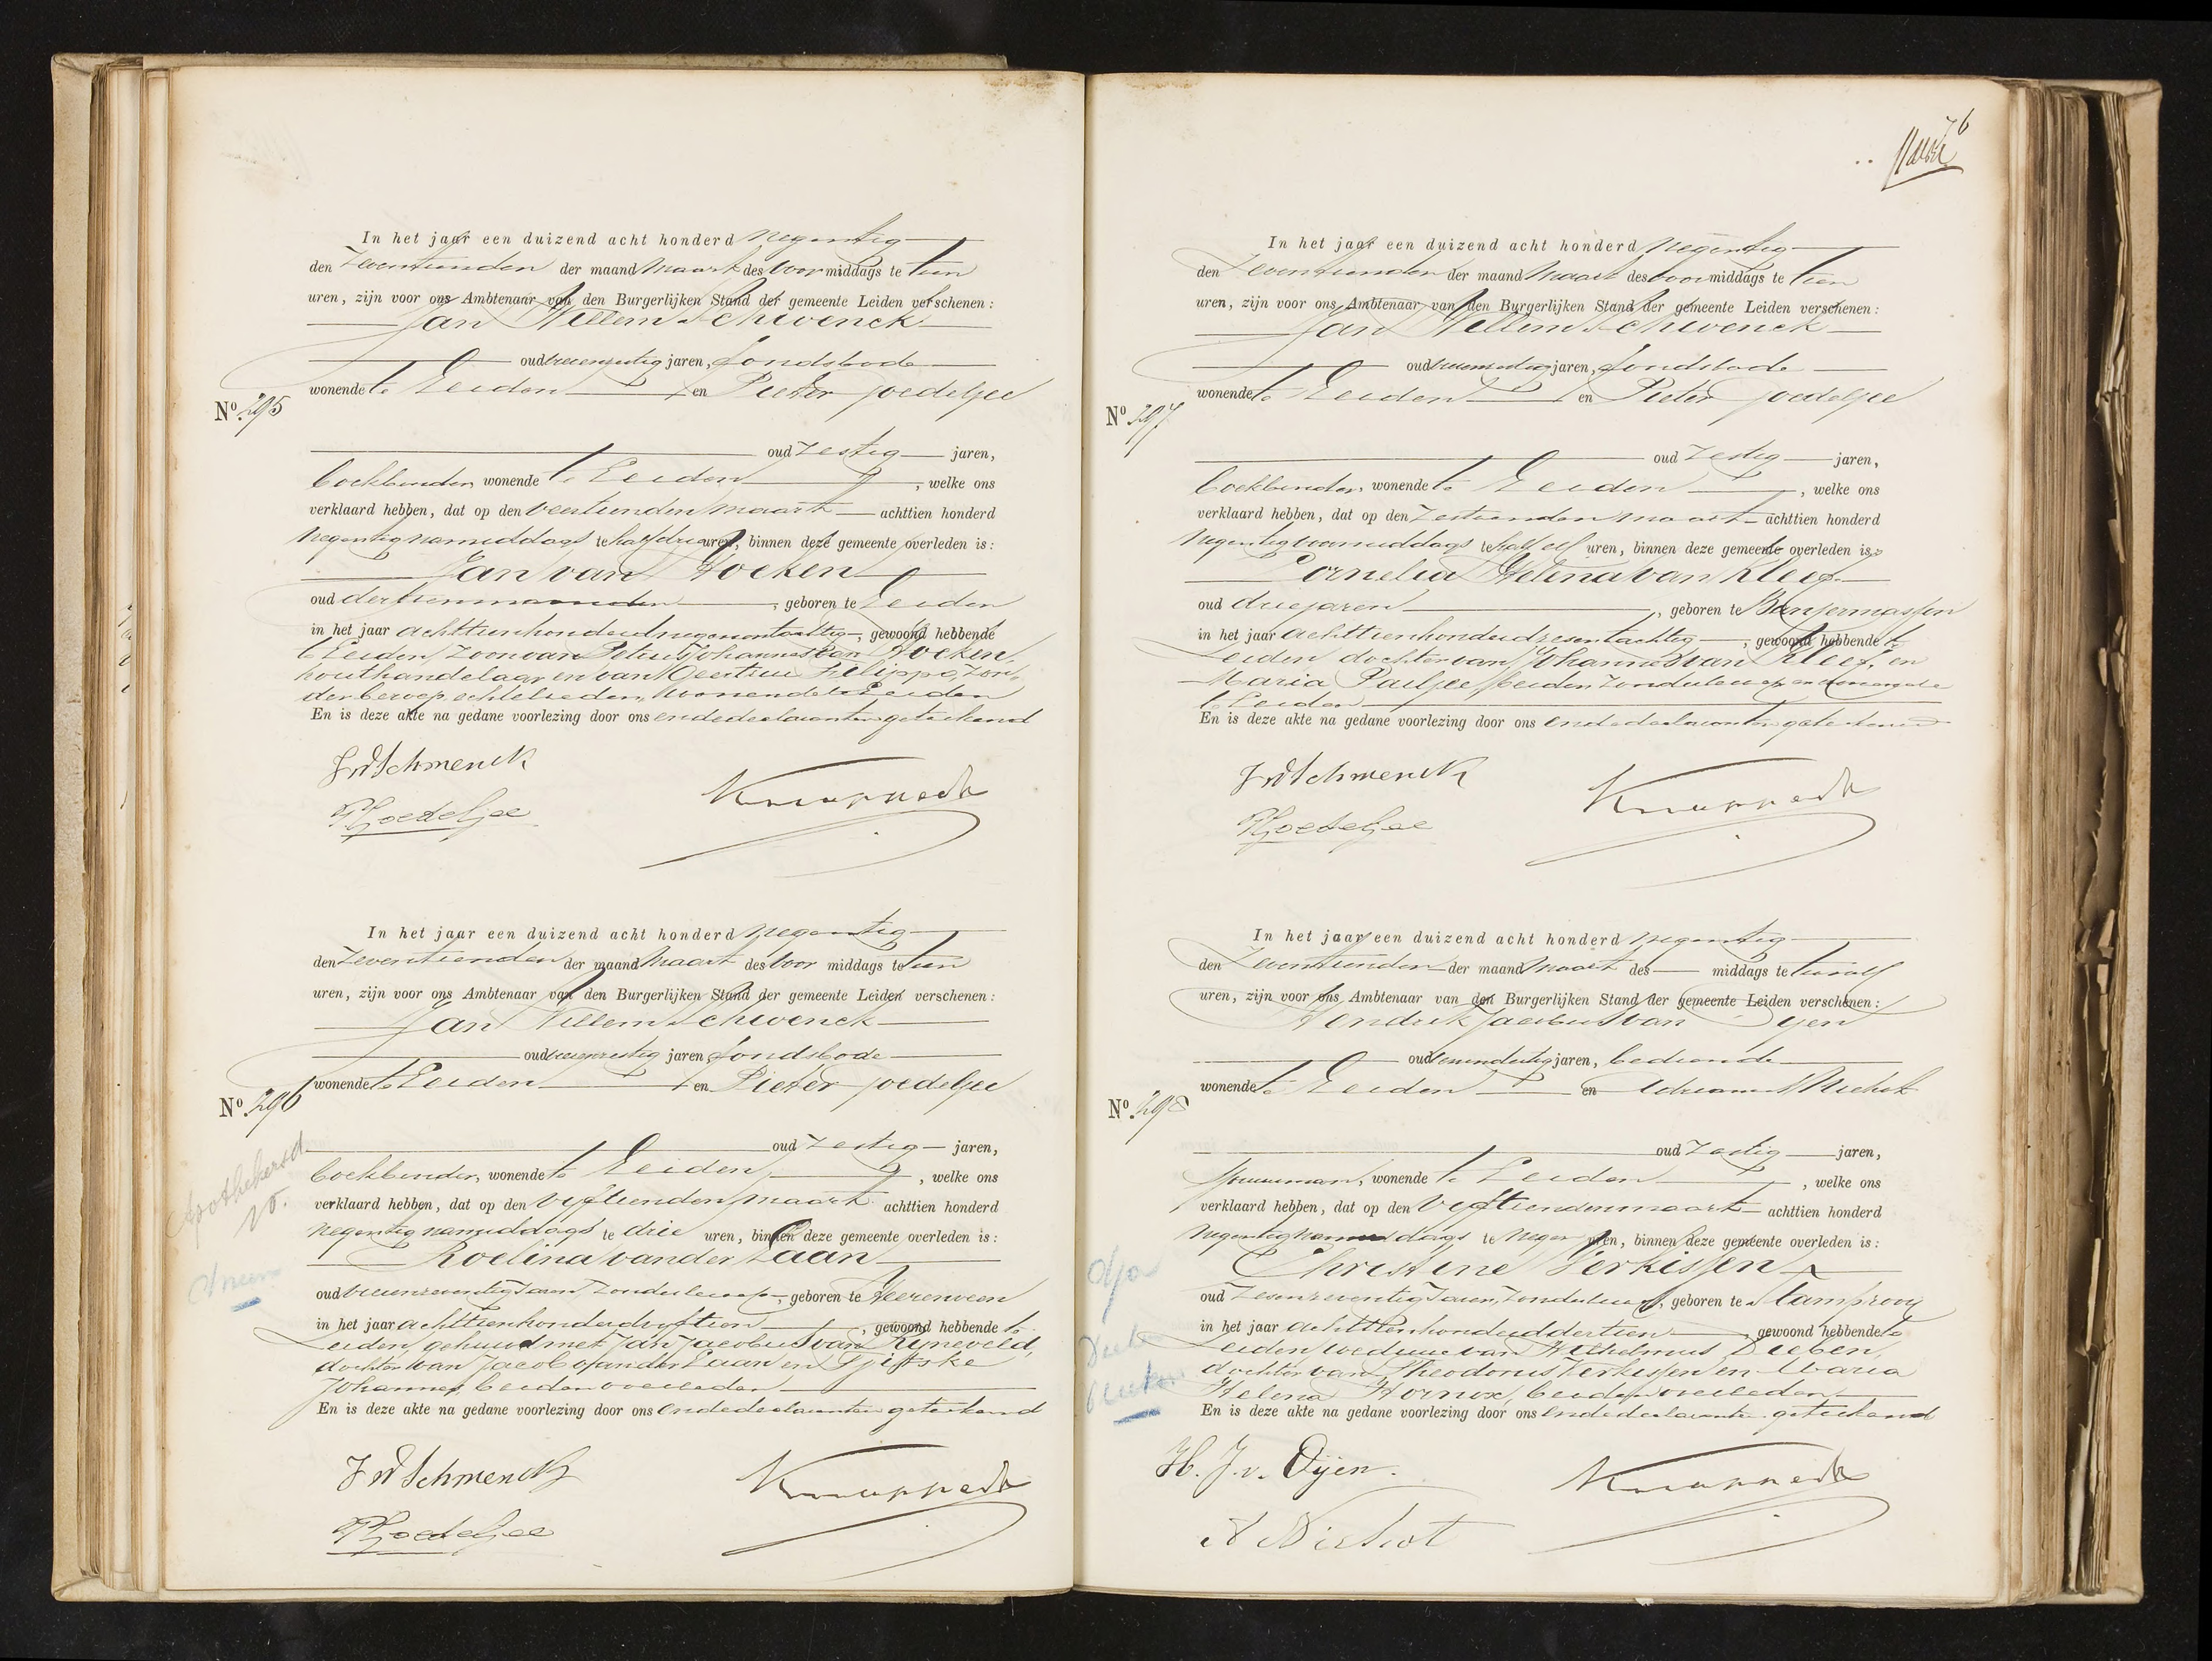 In het jaar een duizend acht honderd negentig
den Zeventienden der maand Maart des voormiddags te tien
uren, zijn voor ons Ambtenaar van den Burgerlijken Stand der gemeente Leiden verschenen:
Jan Willem Schwenck
oud jaren, fondsbode
wonende te Leiden en Pieter Goedeljee
No. 295
oud zestig jaren,
boekbinder, wonende te Leiden, welke ons
verklaard hebben, dat op den veertienden maart achttien honderd
negentig namiddags te half drie uren, binnen deze gemeente overleden is:
Jan van Hoeken
oud dertien maanden, geboren te Leiden
in het jaar achttienhonderd negenentachtig, gewoond hebbende
te Leiden, zoon van Petrus Johannes van Hoeken,
houthandelaar en van Geertrui Filippo, zon-
der beroep, echtelieden, wonende te Leiden
En is deze akte na gedane voorlezing door ons en de declaranten geteekend
JWSchwenck
PGoedeljee
Knappert
In het jaar een duizend acht honderd negentig
den Zeventienden der maand Maart des voor middags te tien
uren, zijn voor ons Ambtenaar van den Burgerlijken Stand der gemeente Leiden verschenen:
Jan Willem Schwenck
oud jaren, fondsbode
wonende te Leiden en Pieter Goedeljee
No. 296
oud zestig jaren,
boekbinder, wonende te Leiden, welke ons
verklaard hebben, dat op den vijftienden maart achttien honderd
negentig namiddags te drie uren, binnen deze gemeente overleden is:
Roelina van der Laan
oud vierenzeventig jaren, zonder beroep, geboren te Heerenveen
in het jaar achttienhonderd vijftien, gewoond hebbende te
Leiden, gehuwd met Jan Jacobus van Rijneveld,
dochter van Jacob van der Laan en Tjitske
Johannes, beiden overleden
En is deze akte na gedane voorlezing door ons en de declaranten geteekend
JWSchwenck
PGoedeljee
Knappert
76
In het jaar een duizend acht honderd negentig
den Zeventienden der maand Maart des voormiddags te tien
uren, zijn voor ons Ambtenaar van den Burgerlijken Stand der gemeente Leiden verschenen:
Jan Willem Schwenck
oud jaren, fondsbode
wonende te Leiden en Pieter Goedeljee
No. 297
oud zestig jaren,
boekbinder, wonende te Leiden, welke ons
verklaard hebben, dat op den zestienden maart achttien honderd
negentig voormiddags te half elf uren, binnen deze gemeente overleden is:
Cornelia Helena van Kleef
oud drie jaren, geboren te Banjermassen
in het jaar achttienhonderd zesentachtig, gewoond hebbende te
Leiden dochter van Johannes van Kleef, en
Maria Pailjee, beiden zonder beroep en wonende
te Leiden
En is deze akte na gedane voorlezing door ons en de declaranten geteekend
JWSchwenck
PGoedeljee
Knappert
In het jaar een duizend acht honderd negentig
den Zeventienden der maand Maart des middags te twaalf
uren, zijn voor ons Ambtenaar van den Burgerlijken Stand der gemeente Leiden verschenen:
Hendrik Jacobus van Oyen
oud jaren, bediende
wonende te Leiden en Adrianus Nichot
No. 298
oud zestig jaren,
wonende te Leiden, welke ons
verklaard hebben, dat op den vijftienden maart achttien honderd
negentig namiddags te negen uren, binnen deze gemeente overleden is:
Christine Verkissen
oud zesenzeventig jaren, zonder beroep, geboren te Stamprooy
in het jaar achttienhonderd dertien, gewoond hebbende te
Leiden weduwe van Wilhelmus Dieben,
dochter van Theodorus Verkissen en Maria
Helena Hornox, beiden overleden
En is deze akte na gedane voorlezing door ons en de declaranten geteekend
H. J. v. Oijen.
A Nichot
Knappert